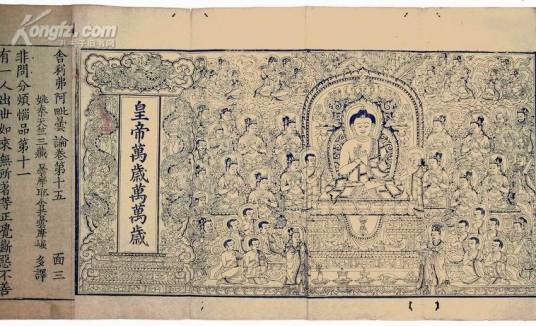 Kongfz.com
皇帝萬歲萬萬歲
舍利弗阿毗曇論卷第十五 面三
姚秦天竺三藏曇摩耶舍共曇摩崛多譯
非問分煩惱品第十一
有一人出世如來無所著等正覺斷惡不善